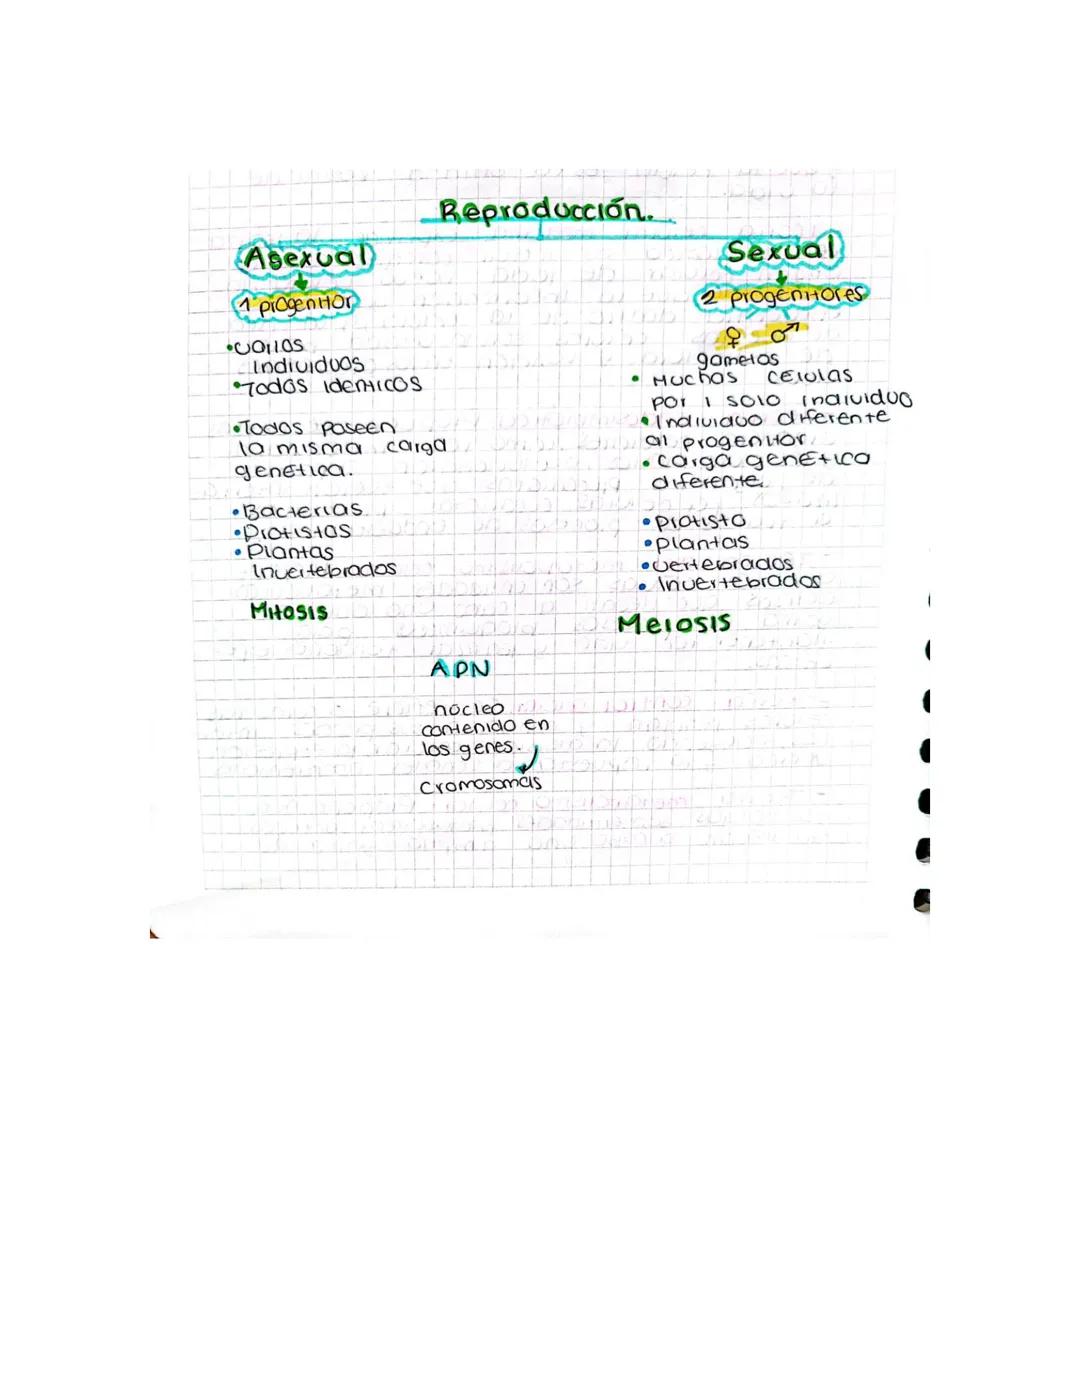 Reproducción.
Asexual
1 progenitor
•varios
individuos
•Todos identicos
•Todos poseen
la misma carga
genética.
•Bacterias
•Protistas
•Plantas
Invertebrados
Mitosis
Sexual
2 progenitores
♀ ♂
gametos
• Muchas células
por 1 solo individuo
•Individuo diferente
al progenitor.
•carga genética
diferente.
•protista
•plantas
•vertebrados
•Invertebrados
Meiosis
ADN
núcleo
contenido en
los genes.
Cromosomas